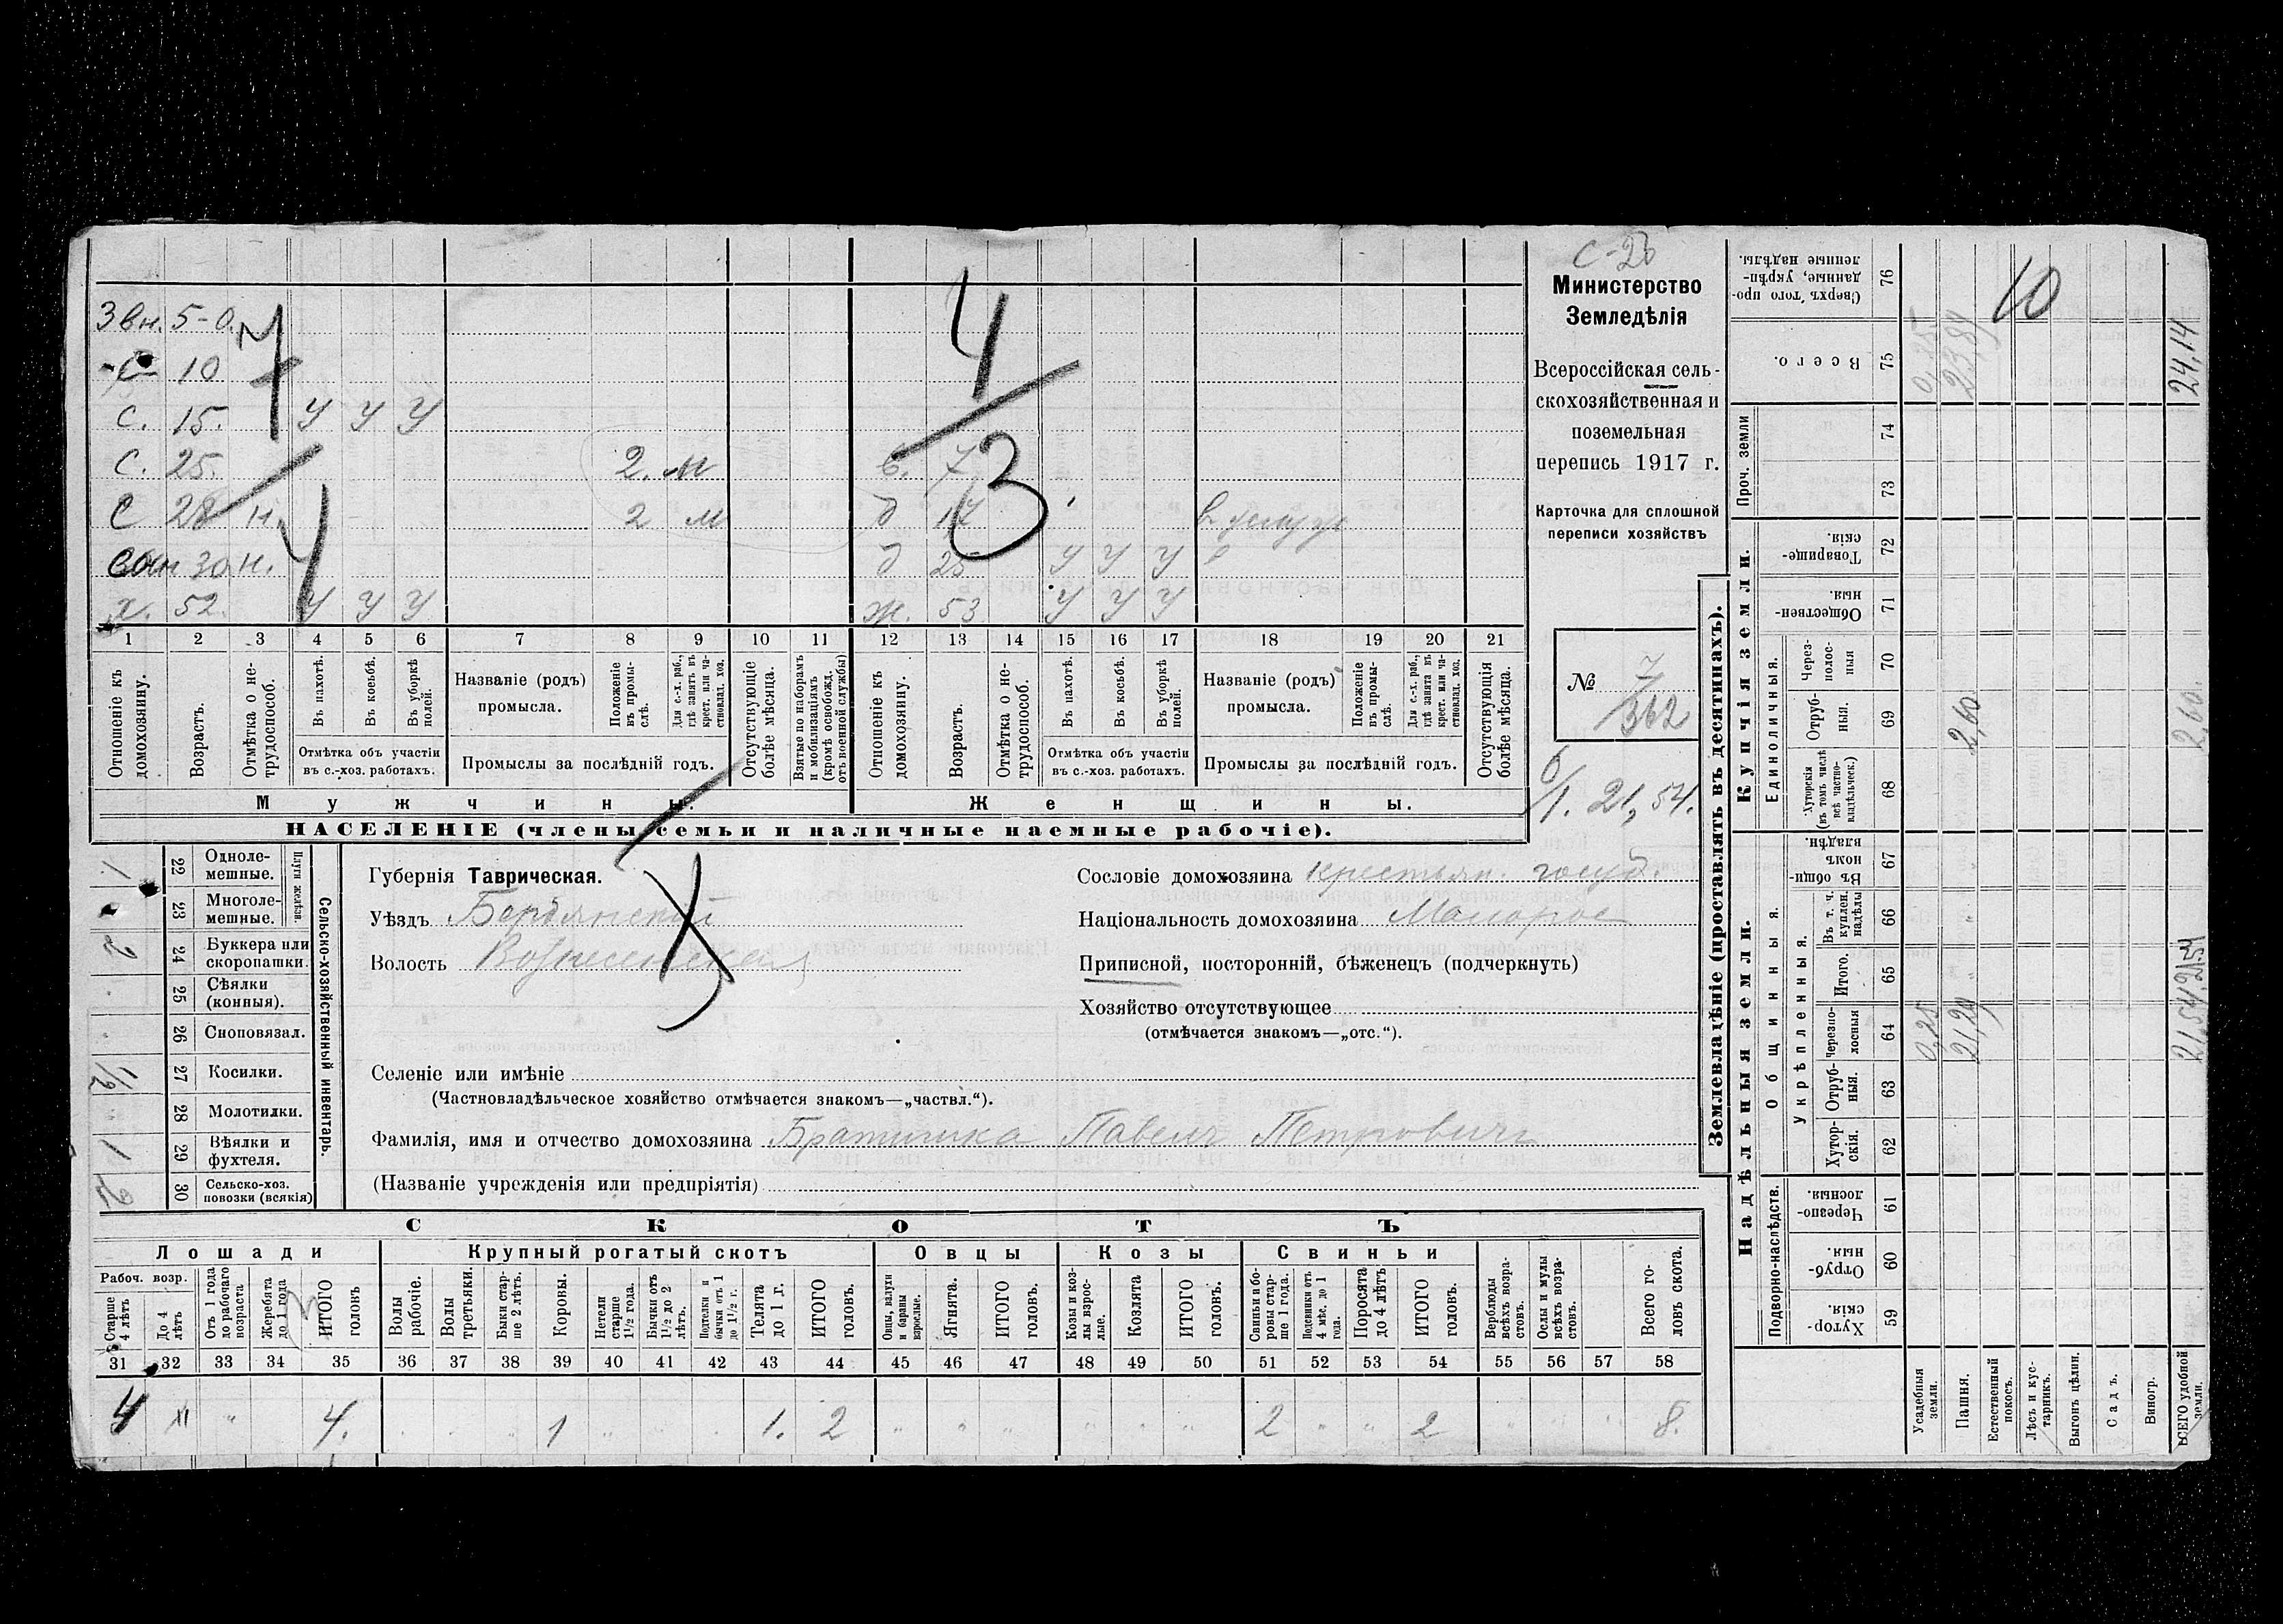 С-20
Министерство
Земледѣлія
Всероссійская сель-
скохозяйственная и
поземельная
перепись 1917 г.
Карточка для сплошной
переписи хозяйствъ
№ 7
362
21,54.
3 вн. 5-0.
С 10
С. 15. У У У
С. 25. 2. м
С 28 н. 2 м
30 н.
х. 52. У У У
7
4
4
3
7
д 17
д 25 У У У
ж. 53 У У У
1 2 3 4 5 6 7 8 9 10 11 12 13 14 15 16 17 18 19 20 21
Отношеніе къ домохозяину.
Возрастъ.
Отмѣтка о не-трудоспособ.
Въ пахотѣ.
Въ косьбѣ.
Въ уборкѣ полей.
Отмѣтка объ участіи въ с.-хоз. работахъ.
Названіе (родъ) промысла.
Положеніе въ промы-слѣ.
Для с.-х. раб., гдѣ занятъ въ крест. или ча-стновлад. хоз.
Промыслы за послѣдній годъ.
Отсутствующіе болѣе мѣсяца.
Взятые по наборамъ и мобилизаціямъ (кромѣ освобожд. отъ военной службы)
Отношеніе къ домохозяину.
Возрастъ.
Отмѣтка о не-трудоспособ.
Въ пахотѣ.
Въ косьбѣ.
Въ уборкѣ полей.
Отмѣтка объ участіи въ с.-хоз. работахъ.
Названіе (родъ) промысла.
Положеніе въ промы-слѣ.
Для с.-х. раб., гдѣ занята въ крест. или ча-стновлад. хоз.
Промыслы за послѣдній годъ.
Отсутствующія болѣе мѣсяца.
Мужчины.
Женщины.
НАСЕЛЕНІЕ (члены семьи и наличные наемные рабочіе).
Сельско-хозяйственный инвентарь.
Плуги желѣзн.
22 Одноле-мешные. 1
23 Многоле-мешные.
24 Буккера или скоропашки. 2
25 Сѣялки (конныя).
26 Сноповязал.
27 Косилки. 1/2
28 Молотилки.
29 Вѣялки и фухтеля. 1
30 Сельско-хоз. повозки (всякія)
Губернія Таврическая.
Уѣздъ Бердянский
Волость Вознесенская
Сословіе домохозяина крестьян. госуд.
Національность домохозяина Малорос
Приписной, посторонній, бѣженецъ (подчеркнуть)
Хозяйство отсутствующее
(отмѣчается знакомъ—„отс.“).
Селеніе или имѣніе
(Частновладѣльческое хозяйство отмѣчается знакомъ—„частвл.“).
Фамилія, имя и отчество домохозяина Братишка Павелъ Петровичъ
(Названіе учрежденія или предпріятія)
СКОТЪ
Лошади
Крупный рогатый скотъ
Овцы
Козы
Свиньи
Рабоч. возр.
Старше 4 лѣтъ
До 4 лѣтъ
Отъ 1 года до рабочаго возраста
Жеребята до 1 года
ИТОГО головъ
Волы рабочіе.
Волы третьяки.
Быки стар-ше 2 лѣтъ.
Коровы.
Нетели старше 1½ года.
Бычки отъ 1½ до 2 лѣтъ.
Подтелки и бычки отъ 1 до 1½ г.
Телята до 1 г.
ИТОГО головъ.
Овцы, валухи и бараны взрослые.
Ягнята.
ИТОГО головъ.
Козы и коз-лы взрос-лые.
Козлята
ИТОГО головъ.
Свиньи и бо-ровы стар-ше 1 года.
Подсвинки отъ 4 мѣс. до 1 года.
Поросята до 4 лѣтъ
ИТОГО головъ.
Верблюды всѣхъ возра-стовъ.
Ослы и мулы всѣхъ возра-стовъ.
Всего го-ловъ скота.
31 32 33 34 35 36 37 38 39 40 41 42 43 44 45 46 47 48 49 50 51 52 53 54 55 56 57 58
4 „ 4. 1 1. 2 2 2 8.
Землевладѣніе (проставлять въ десятинахъ).
Надѣльныя земли.
Купчія земли.
Проч. земли
Подворно-наслѣдств.
Общинныя.
Укрѣпленныя.
Единоличныя.
59 Хутор-скія.
60 Отруб-ныя.
61 Черезпо-лосныя.
62 Хутор-скія.
63 Отруб-ныя.
64 Черезпо-лосныя
65 Итого.
66 Въ т. ч. куплен. надѣлы
67 Въ общин-номъ владѣн.
68 Хуторскія (въ томъ числѣ всѣ частно-владѣльческ.)
69 Отруб-ныя.
70 Через-полос-ныя
71 Обществен-ныя.
72 Товарище-скія.
73
74
75 Всего.
76 Сверхъ того про-данные, укрѣп-ленные надѣлы.
Усадебныя земли. 0,25
Пашня. 21,29 2,60 23,89
Естественный покосъ.
Лѣсъ и кус-тарникъ.
Выгонъ цѣлин.
Садъ.
Виногр.
ВСЕГО удобной земли. 21,54 21,54 2,60. 24,14
10